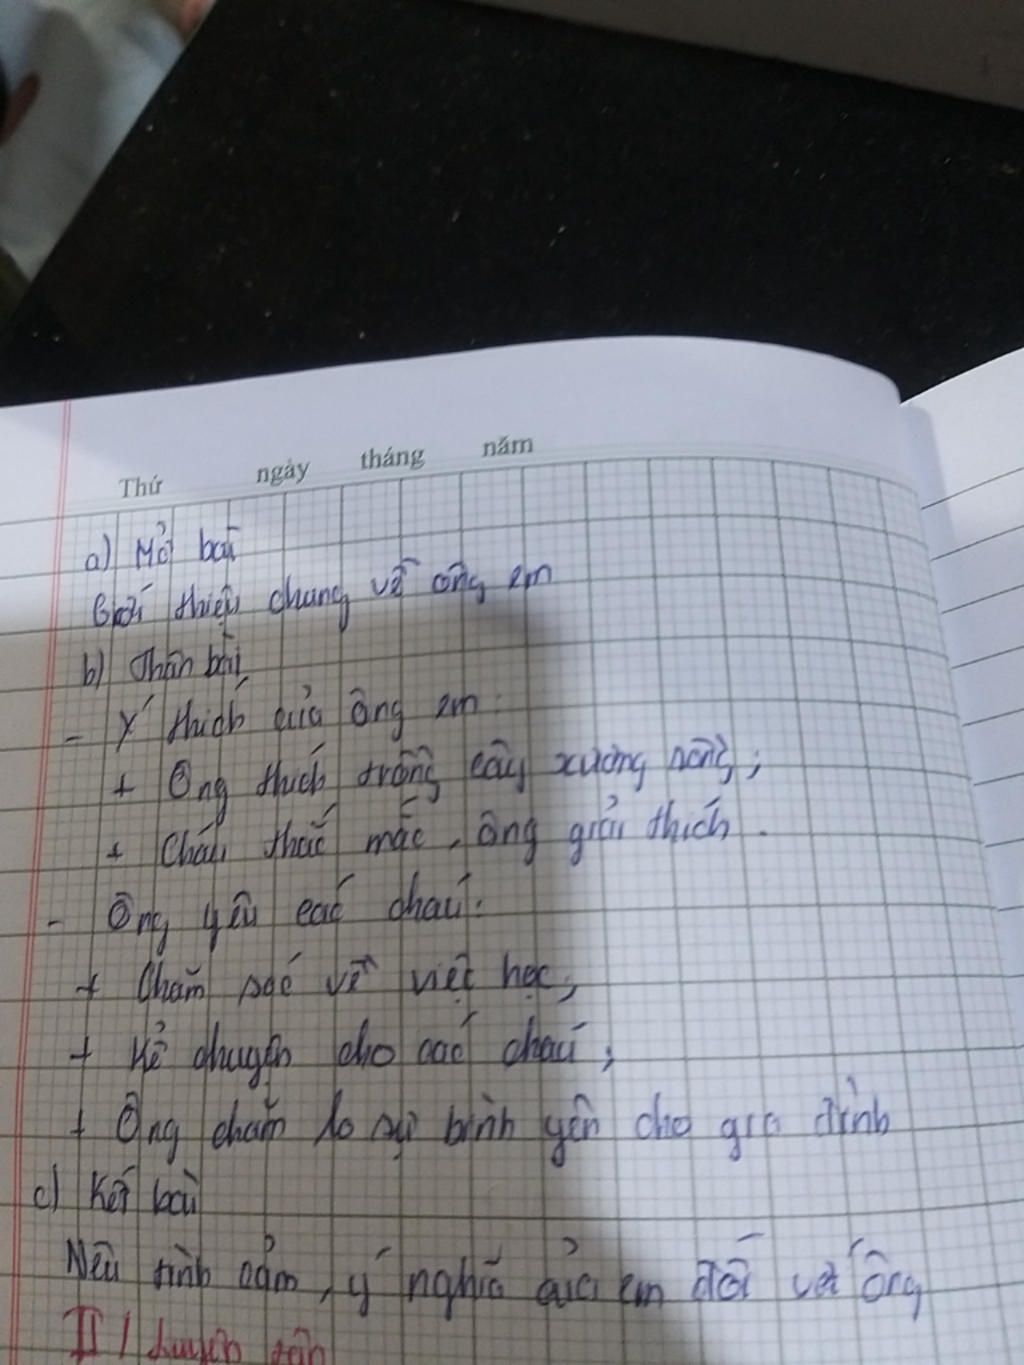 Thứ ngày tháng năm
a) Mở bài
Giới thiệu chung về ông em
b) Thân bài
- Ý thích của ông em:
+ Ông thích trồng cây xương rồng;
+ Cháu thắc mắc, ông giải thích.
- Ông yêu các cháu:
+ Chăm sóc về việc học;
+ Kể chuyện cho các cháu;
+ Ông chăm lo sự bình yên cho gia đình
c) Kết bài
Nêu tình cảm, ý nghĩ của em đối với ông
II / Luyện tập